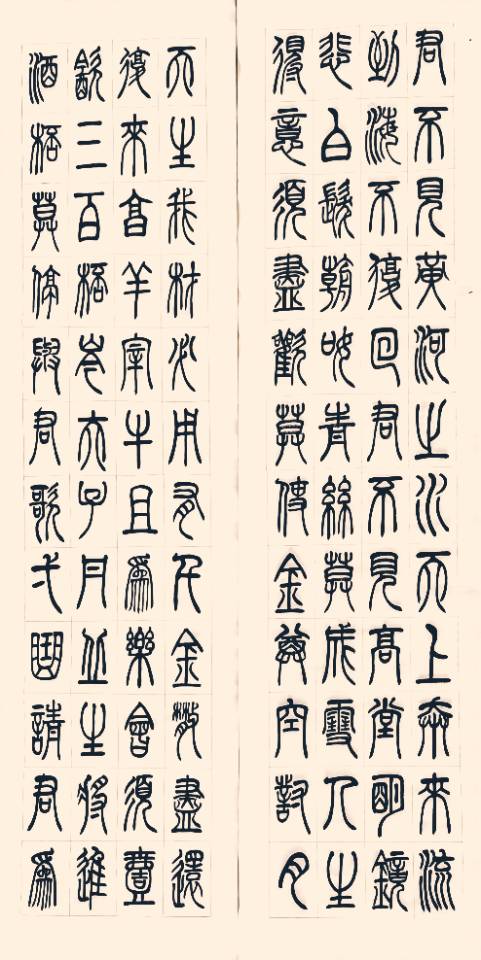 君不見黃河之水天上奔來流
到海不復回君不見高堂明鏡
悲白髮朝如青絲莫成雪人生
得意須盡歡莫使金尊空對月
天生我材必用有千金散盡還
復來亯羊宰牛且為樂會須壹
飲三百桮岑夫子丹丘生將進
酒桮莫停與君歌弌曲請君為